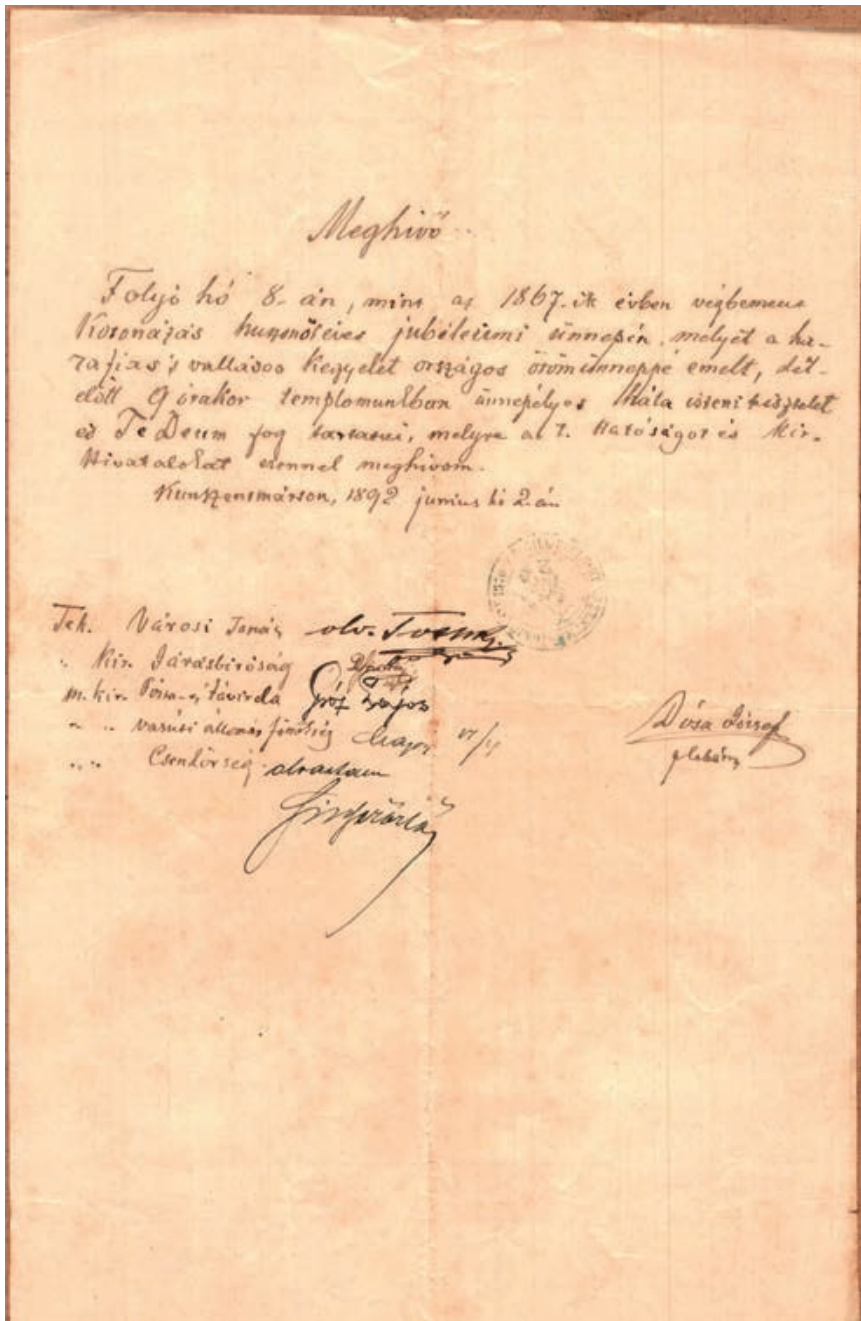 Meghivó
Folyó hó 8-án, mint az 1867-ik évben végbement
Koronázás huszonötéves jubéleumi ünnepén, melyet a ha-
zafias s vallásos kegyelet országos örömünneppé emelt, dél-
előtt 9 órakor templomunkban ünnepélyes hála isteni tisztelet
és TeDeum fog tartatni, melyre a t. Hatóságot és Kir.
Hivatalokat ezennel meghivom.
Kunszentmárton, 1892 junius hó 2-án
Tek. Városi Tanács olv.
" Kir. Járásbiróság
m. kir. Posta- s távirda Lajos
" " vasúti állomás főnökség
" " Csendörség olvastam
Dósa József
plébános